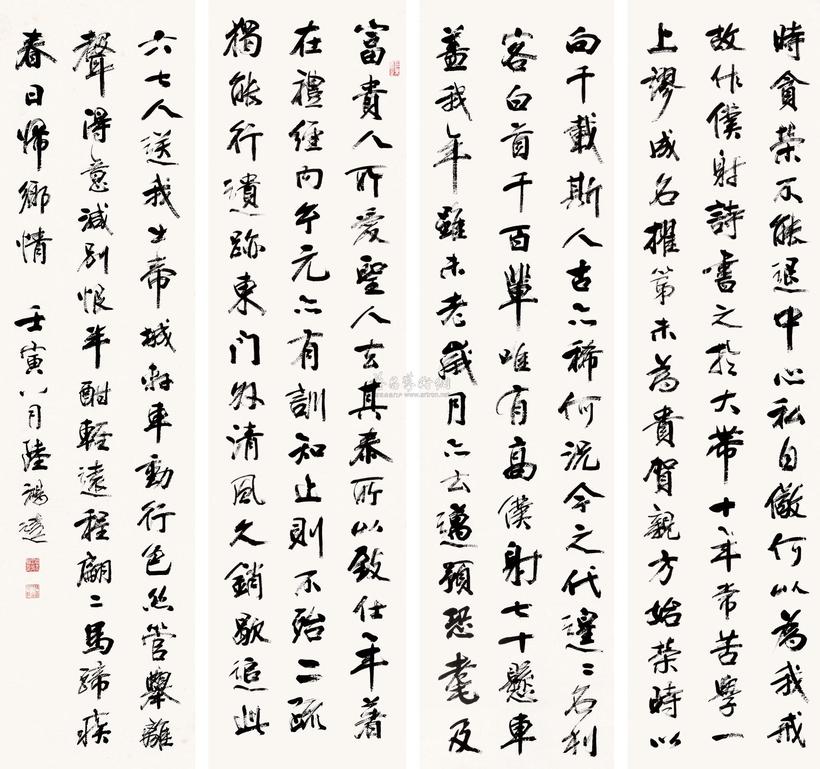 富貴人所愛聖人去其泰所以致仕年著
在禮經內玄元亦有訓知止則不殆二疏
獨能行遺跡東門外清風久銷歇追此
向千載斯人古亦稀何況今之代遑〻名利
客白首千百輩唯有高僕射七十懸車
蓋我年雖未老歲月亦云邁預恐耄及
時貪榮不能退中心私自儆何以為我戒
故作僕射詩書之於大帶十年常苦學一
上謬成名擢第未為貴賀親方始榮時以
六七人送我出帝城軒車動行色絲管舉離
聲得意減別恨半酣輕遠程翩〻馬蹄疾
春日歸鄉情 壬寅八月陸